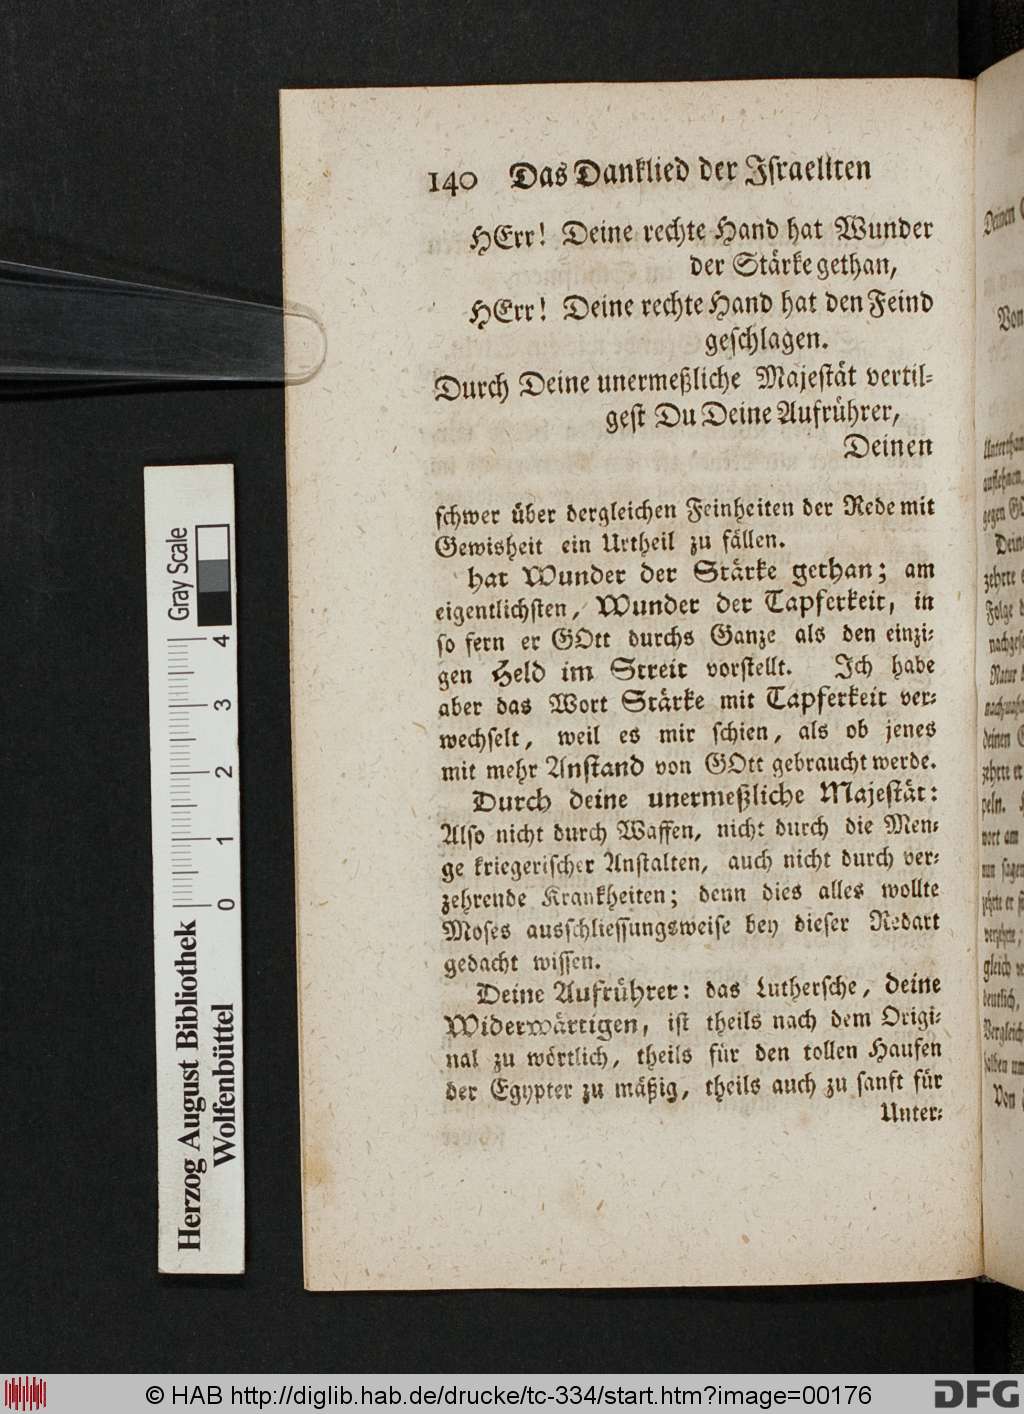 140 Das Danklied der Israeliten
HErr! Deine rechte Hand hat Wunder
der Stärke gethan,
HErr! Deine rechte Hand hat den Feind
geschlagen.
Durch Deine unermeßliche Majestät vertil-
gest Du Deine Aufrührer,
Deinen
schwer über dergleichen Feinheiten der Rede mit
Gewisheit ein Urtheil zu fällen.
hat Wunder der Stärke gethan; am
eigentlichsten, Wunder der Tapferkeit, in
so fern er GOtt durchs Ganze als den einzi-
gen Held im Streit vorstellt. Ich habe
aber das Wort Stärke mit Tapferkeit ver-
wechselt, weil es mir schien, als ob jenes
mit mehr Anstand von GOtt gebraucht werde.
Durch deine unermeßliche Majestät:
Also nicht durch Waffen, nicht durch die Men-
ge kriegerischer Anstalten, auch nicht durch ver-
zehrende Krankheiten; denn dies alles wollte
Moses ausschliessungsweise bey dieser Redart
gedacht wissen.
Deine Aufrührer: das Luthersche, deine
Widerwärtigen, ist theils nach dem Origi-
nal zu wörtlich, theils für den tollen Haufen
der Egypter zu mäßig, theils auch zu sanft für
Unter-
Gray Scale
0 1 2 3 4
Herzog August Bibliothek
Wolfenbüttel
Deinen
Von
gegen
zehrte
Folge
Natur
deinen
zehrte er
peln.
wort am
nun sagen
zehrte er
gleich
Von
© HAB http://diglib.hab.de/drucke/tc-334/start.htm?image=00176
DFG